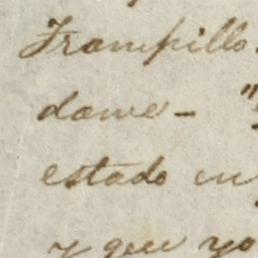 Trampillo.
dame - "
estado en
y que yo